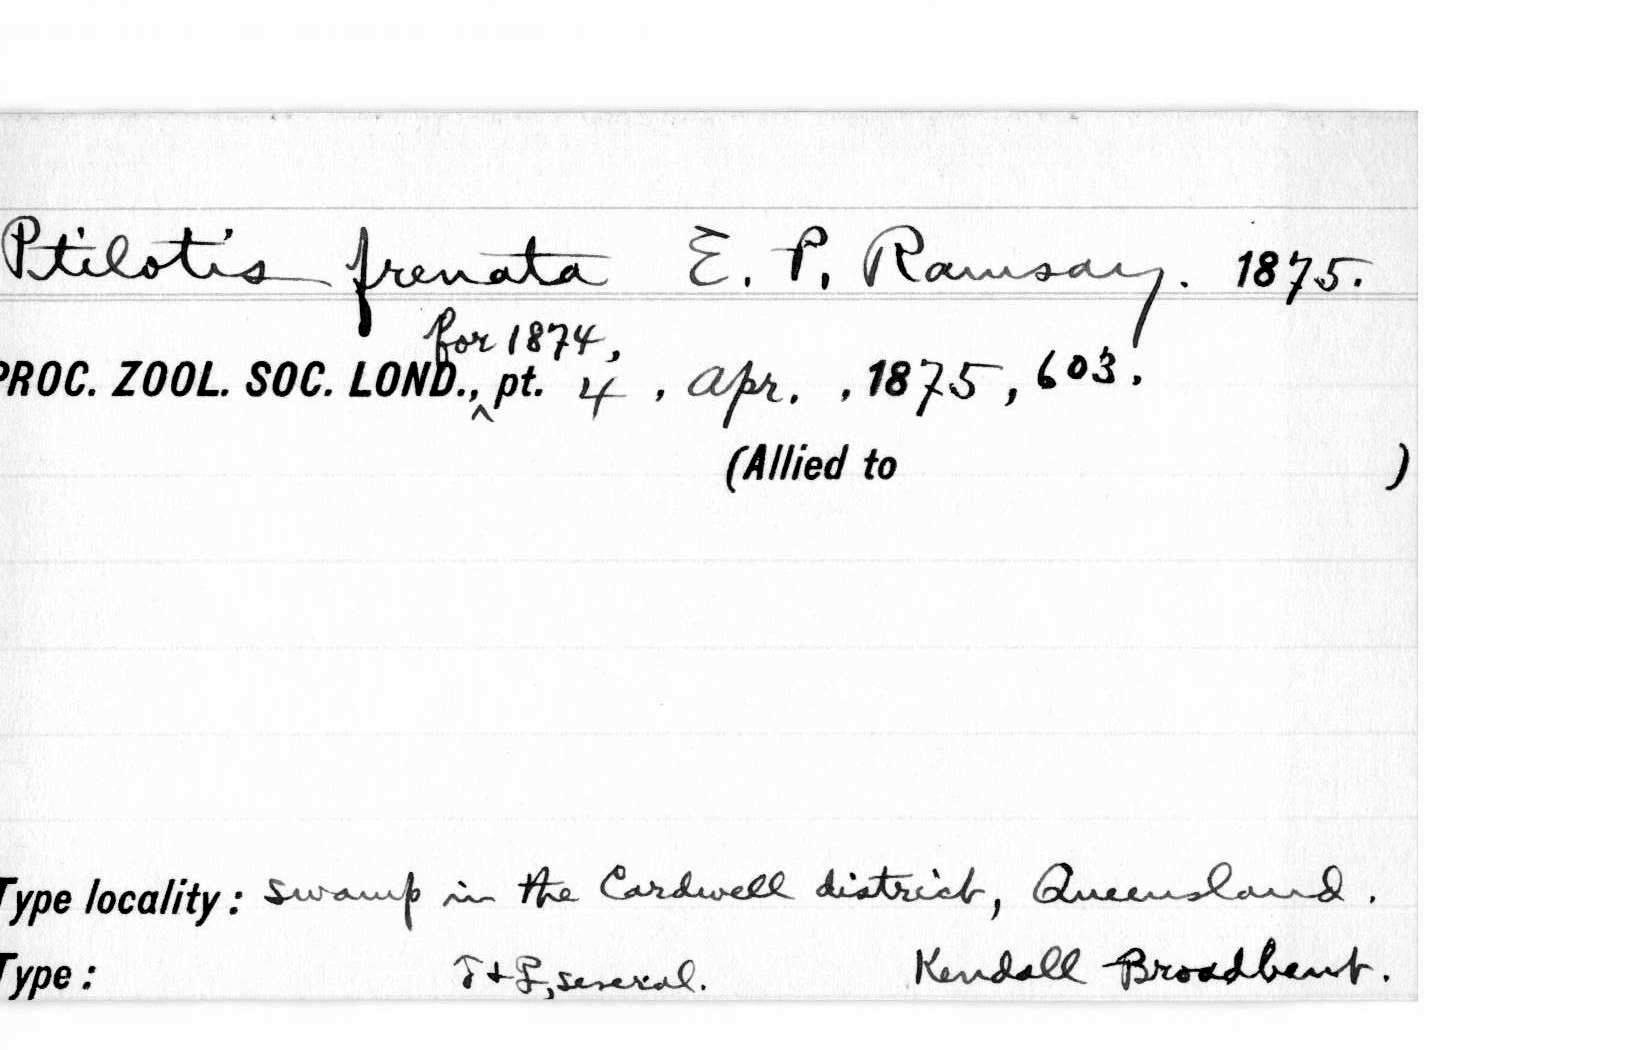 Ptilotis frenata E. P. Ramsay. 1875.
for 1874,
PROC. ZOOL. SOC. LOND., ^ pt. 4 , Apr. , 1875, 603.
(Allied to )
Type locality: swamp in the Cardwell district, Queensland.
Type: ♂ + ♀, several. Kendall Broadbent.